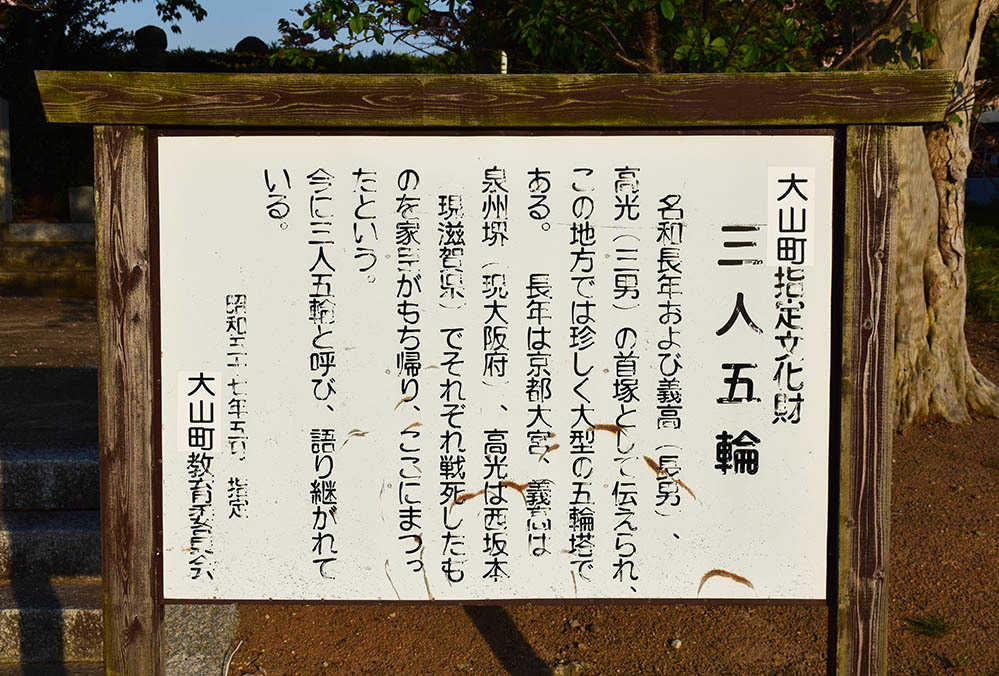 大山町指定文化財
三人五輪
名和長年および義高（長男）、
高光（三男）の首塚として伝えられ、
この地方では珍しく大型の五輪塔で
ある。　長年は京都大宮、義高は
泉州堺（現大阪府）、高光は西坂本
現滋賀県）でそれぞれ戦死したも
のを家臣がもち帰り、ここにまつっ
たという。
今に三人五輪と呼び、語り継がれて
いる。
昭和 七年 指定
大山町教育委員会